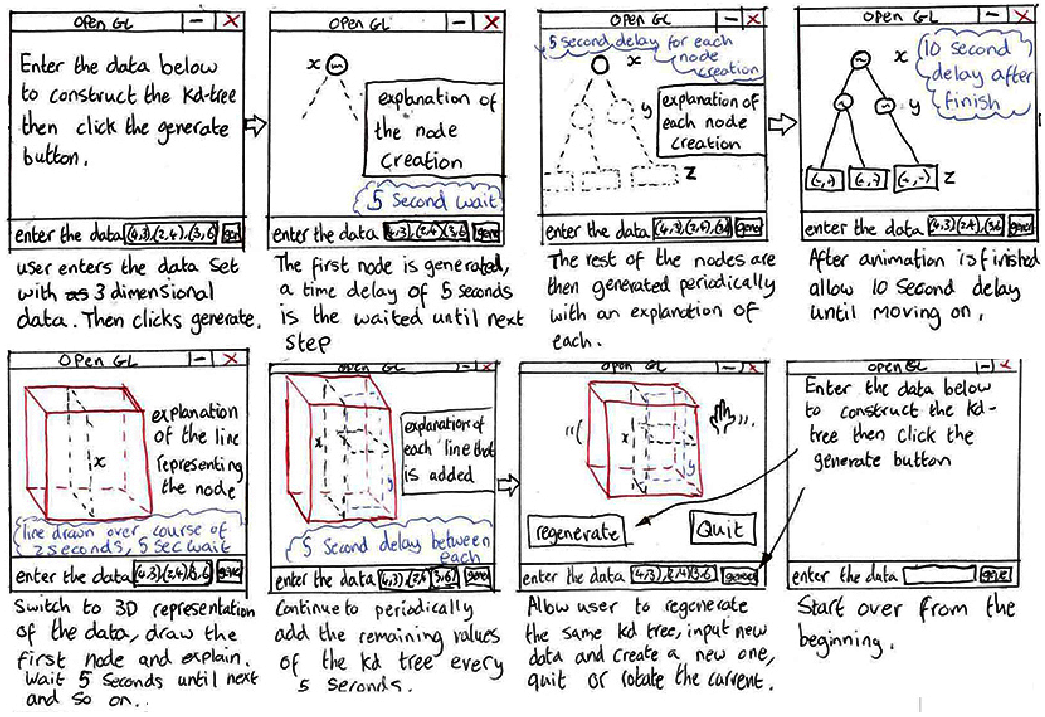 Open GL
Enter the data below
to construct the kd-tree
then click the generate
button.
enter the data (4,3),(2,4),(3,6)
user enters the data set
with 3 dimensional
data. Then clicks generate.
Open GL
x
explanation of
the node
creation
5 Second wait
enter the data (2,4)(3,6 gene
The first node is generated,
a time delay of 5 seconds
is the waited until next
step
Open GL
5 second delay for each
node
creation
x
y
explanation of
each node
creation
z
enter the data (4,3),(2,4),
The rest of the nodes are
then generated periodically
with an explanation of
each.
Open GL
x
10 second
delay after
finish
y
z
enter the data
After animation is finished
allow 10 second delay
until moving on.
Open GL
explanation
of the line
representing
the node
x
line drawn over course of
2 seconds, 5 sec wait
enter the data (4,3)(2,4)(3,6) gene
Switch to 3D representation
of the data, draw the
first node and explain.
Wait 5 seconds until next
and so on..
Open GL
x
y
explanation of
each line that
is added
5 second delay between
each
enter the data
Continue to periodically
add the remaining values
of the kd tree every
5 seconds.
Open GL
x
y
regenerate
Quit
enter the data
Allow user to regenerate
the same kd tree, input new
data and create a new one,
quit or rotate the current.
Open GL
Enter the data below
to construct the kd-
tree then click the
generate button
enter the data
Start over from the
beginning.